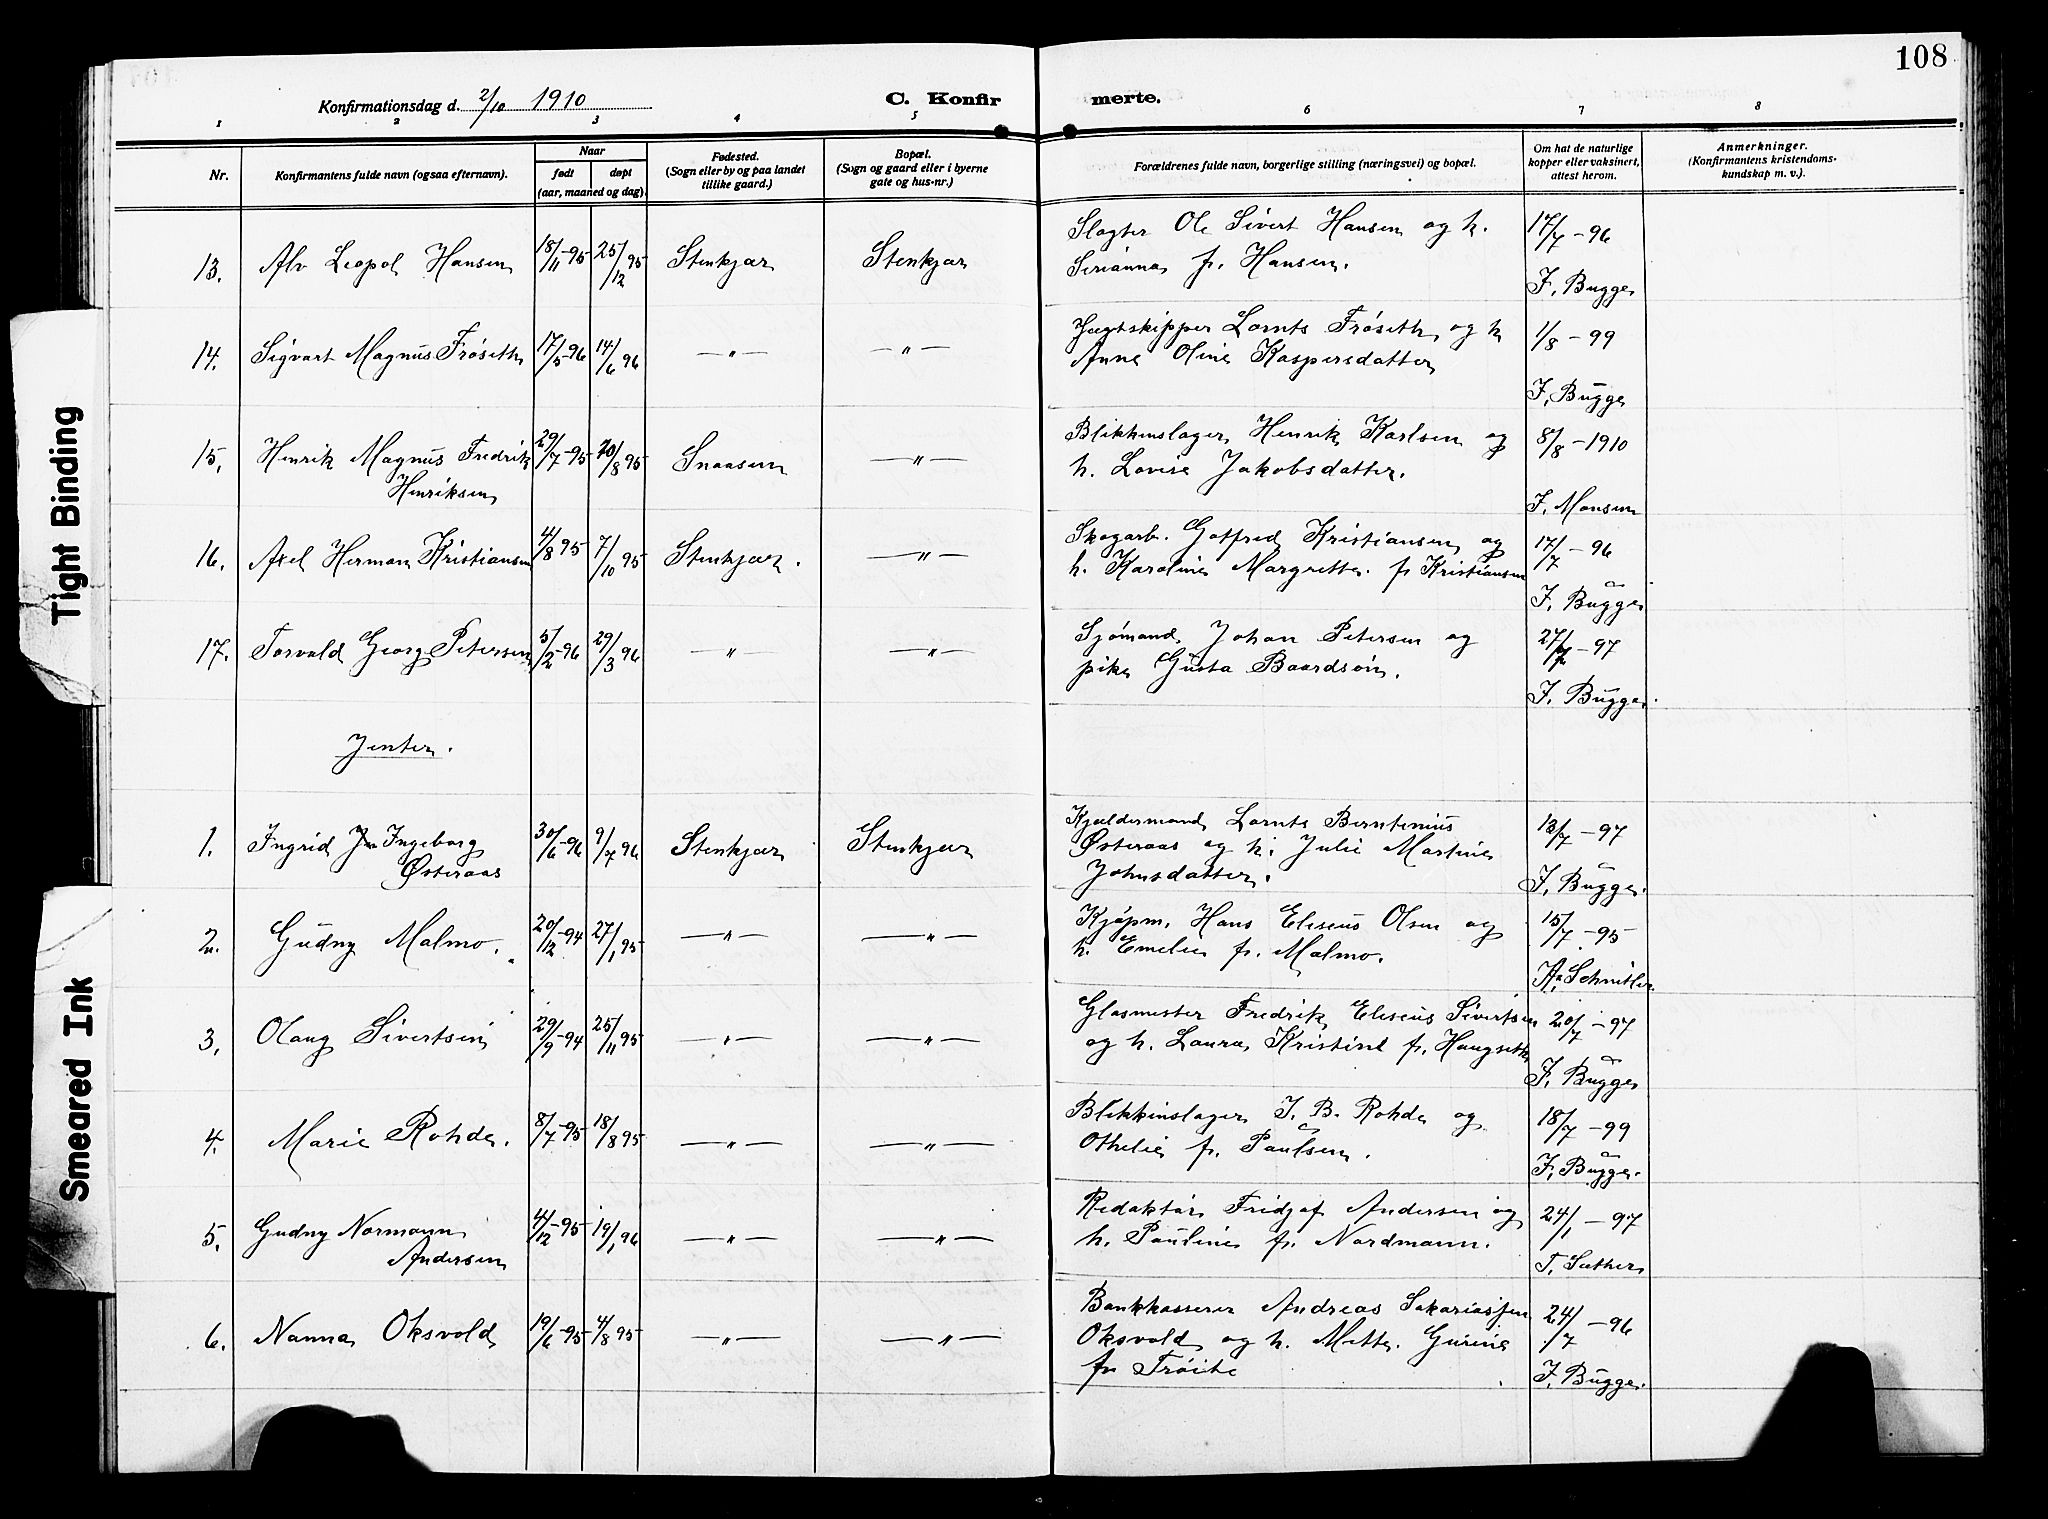 108
Konfirmationsdag d. 2/10 1910
C. Konfirmerte.
1 2 3 4 5 6 7 8
Nr.
Konfirmantens fulde navn (ogsaa efternavn).
Naar
født døpt
(aar, maaned og dag).
Fødested.
(Sogn eller by og paa landet
tillike gaard.)
Bopæl.
(Sogn og gaard eller i byerne
gate og hus-nr.)
Forældrenes fulde navn, borgerlige stilling (næringsvei) og bopæl.
Om hat de naturlige
kopper eller vaksinert,
attest herom.
Anmerkninger.
(Konfirmantens kristendoms-
kundskap m. v.).
13. Alv Leopol Hansen 18/11-95 25/12 95 Stenkjær Stenkjær Slagter Ole Sivert Hansen og h. 17/7-96
Serianna f. Hansen. F. Bugge
14. Sigvart Magnus Frøseth 17/5-96 14/6 96 —"— —"— Jægtskipper Lornts Frøseth og h 1/8-99
Anne Oline Kaspersdatter F. Bugge
15. Henrik Magnus Fredrik 29/7-95 20/8 95 Snaasen —"— Blikkenslager Henrik Karlsen og 8/8-1910
Henriksen h. Lovise Jakobsdatter. F. Monsen
16. Axel Herman Kristiansen 4/8 95 7/10 95 Stenkjær. —"— Skogarb. Gotfred Kristiansen og 17/7-96
h. Karoline Margrette f. Kristiansen F. Bugge
17. Torvald Georg Petersen 5/2-96 29/3 96 —"— —"— Sjømand Johan Petersen og 27/7-97
pike Gusta Baardsøn. F. Bugge.
Jenter.
1. Ingrid Ingeborg 30/6-96 9/7 96 Stenkjær Stenkjær Kjældermand Lornts Berntinius 13/7-97
Østeraas Østeraas og h. Julie Martine
Johnsdatter. F. Bugge.
2. Gudny Malmo. 20/12-94 27/1 95 —"— —"— Kjøpm. Hans Eliseus Olsen og 15/7-95
h. Emelie f. Malmo. A. Schnitler
3. Olaug Sivertsen 29/9-94 25/11 95 —"— —"— Glasmester Fredrik Eliseus Sivertsen 20/7-97
og h. Laura Kristine f. Haugseth F. Bugge
4. Marie Rohde. 8/7-95 18/8 95 —"— —"— Blikkinslager J. B. Rohde og 18/7-99
Othelie f. Paulsen. F. Bugge.
5. Gudny Normann 4/12-95 19/1 96 —"— —"— Redaktør Fridjof Andersen og 24/1-97
Andersen h. Pauline f. Nordmann. T. Sæther
6. Nanna Oksvold 19/6-95 4/8 95 —"— —"— Bankkasserer Andreas Sakariassen 24/7-96
Oksvold og h. Mette Gurine
f. Trøite F. Bugge.
Tight Binding
Smeared Ink